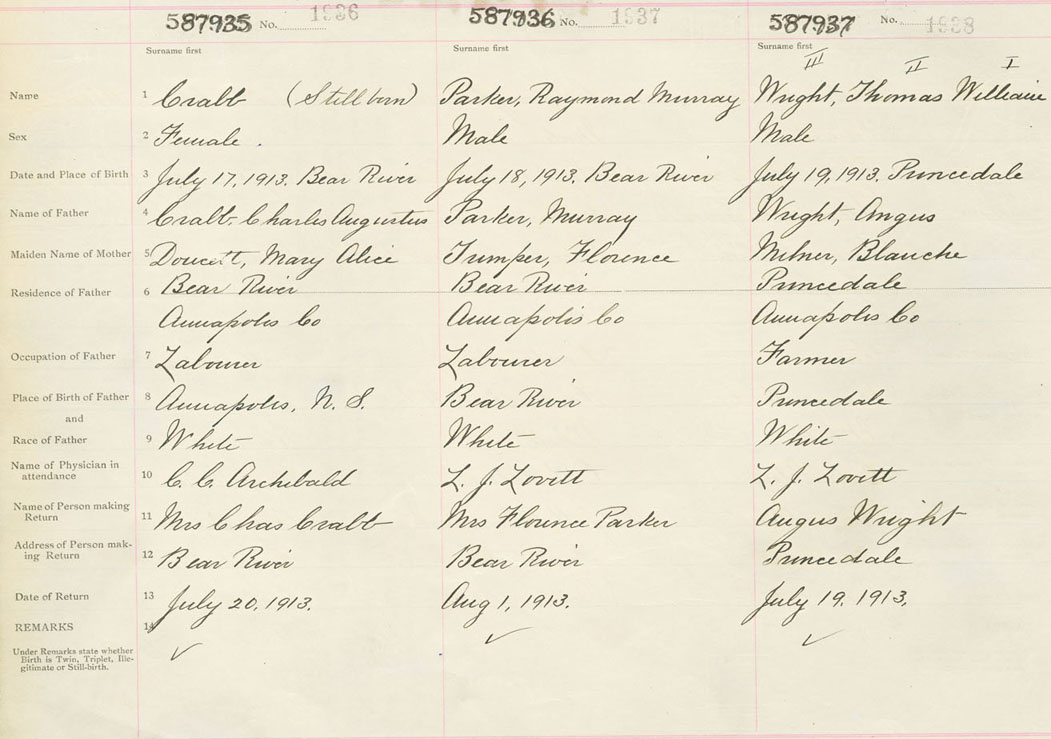 587935 No. 1936 587936 No. 1937 587937 No. 1938
Surname first Surname first Surname first
III II I
Name 1 Crabb (Stillborn) Parker, Raymond Murray Wright, Thomas William
Sex 2 Female. Male Male
Date and Place of Birth 3 July 17, 1913. Bear River July 18, 1913. Bear River July 19, 1913. Princedale
Name of Father 4 Crabb, Charles Augustus Parker, Murray Wright, Angus
Maiden Name of Mother 5 Doucett, Mary Alice Jumper, Florence Milner, Blanche
Residence of Father 6 Bear River Bear River Princedale
Annapolis Co Annapolis Co Annapolis Co
Occupation of Father 7 Labourer Labourer Farmer
Place of Birth of Father 8 Annapolis, N. S. Bear River Princedale
and
Race of Father 9 White White White
Name of Physician in
attendance 10 C. C. Archibald L. J. Lovitt L. J. Lovitt
Name of Person making
Return 11 Mrs Chas Crabb Mrs Florence Parker Angus Wright
Address of Person mak-
ing Return 12 Bear River Bear River Princedale
Date of Return 13 July 20, 1913. Aug 1, 1913. July 19, 1913.
REMARKS 14
Under Remarks state whether
Birth is Twin, Triplet, Ille-
gitimate or Still-birth.